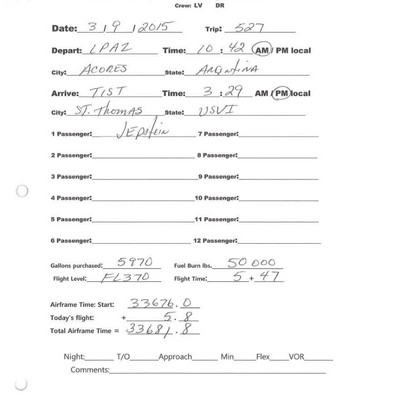 Crew: LV DR
Date: 3 / 9 / 2015 Trip: 527
Depart: LPAZ Time: 10 : 42 AM / PM local
City: ACORES State: ARgntiNA
Arrive: TIST Time: 3 : 29 AM / PM local
City: ST. Thomas State: USVI
1 Passenger: JEpstein 7 Passenger:
2 Passenger: 8 Passenger:
3 Passenger: 9 Passenger:
4 Passenger: 10 Passenger:
5 Passenger: 11 Passenger:
6 Passenger: 12 Passenger:
Gallons purchased: 5970 Fuel Burn lbs. 50 000
Flight Level: FL370 Flight Time: 5 + 47
Airframe Time: Start: 33676.0
Today's flight: + 5.8
Total Airframe Time = 33681.8
Night: T/O Approach Min Flex VOR
Comments: